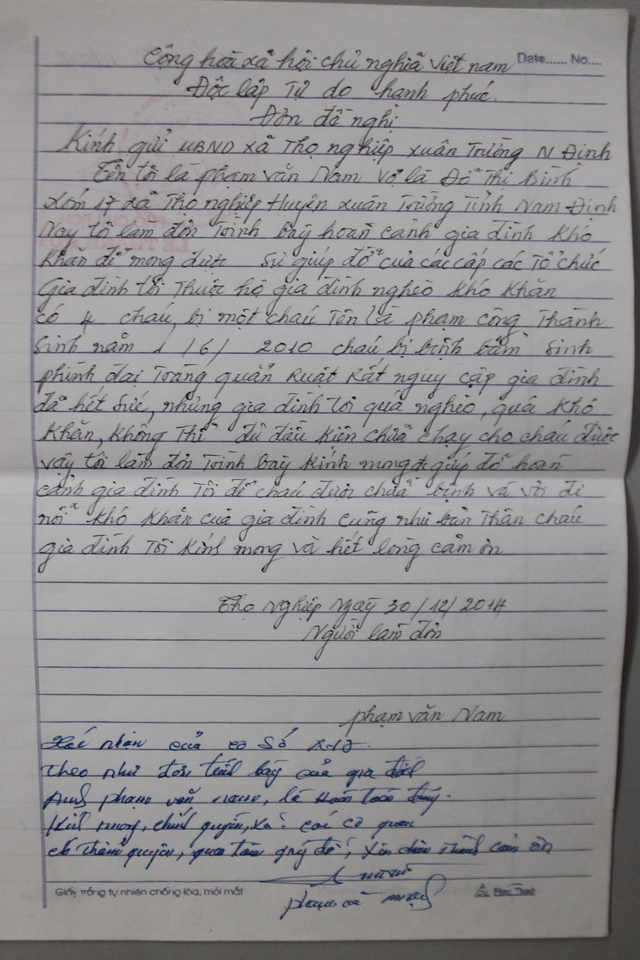 Date...... No....
Công hoà xã hội chủ nghĩa Việt nam
Độc lập Tự do hạnh phúc.
Đơn đề nghị
Kính gửi UBND xã Thọ nghiệp xuân Trường N Định
Tên tôi là phạm văn Nam vợ là Đỗ Thị Bình
xóm 17 xã Thọ nghiệp Huyện xuân Trường Tỉnh Nam Định
Nay tôi làm đơn Trình bày hoàn cảnh gia đình khó
khăn để mong được sự giúp đỡ của các cấp các Tổ chức
Gia đình tôi Thuộc hộ gia đình nghèo khó khăn
có 4 cháu, bị một cháu Tên là phạm công Thành
Sinh năm 1/6/2010 cháu bị bệnh bẩm sinh
phình đại Tràng quản Ruật Rất nguy cập gia đình
đã hết sức, nhưng gia đình tôi quá nghèo, quá khó
khăn, không Thể đủ điều kiện chữa chạy cho cháu được
vậy tôi làm đơn Trình bày kính mong giúp đỡ hoàn
cảnh gia đình Tôi để cháu được chữa bệnh và vời đi
nỗi khó khăn của gia đình cũng như bản Thân cháu
gia đình Tôi kính mong và hết lòng cảm ơn
Thọ Nghiệp Ngày 30/12/2014
Người làm đơn
phạm văn Nam
Xác nhận của cơ Sở
Theo như đơn trình bày của gia đình
Anh phạm văn nam, là Hoàn toàn đúng.
Kính mong, chính quyền, Xã: các cơ quan
có thẩm quyền, quan tâm giúp đỡ, Xin chân thành cảm ơn
phạm
Giấy trắng tự nhiên chống lóa, mỏi mắt